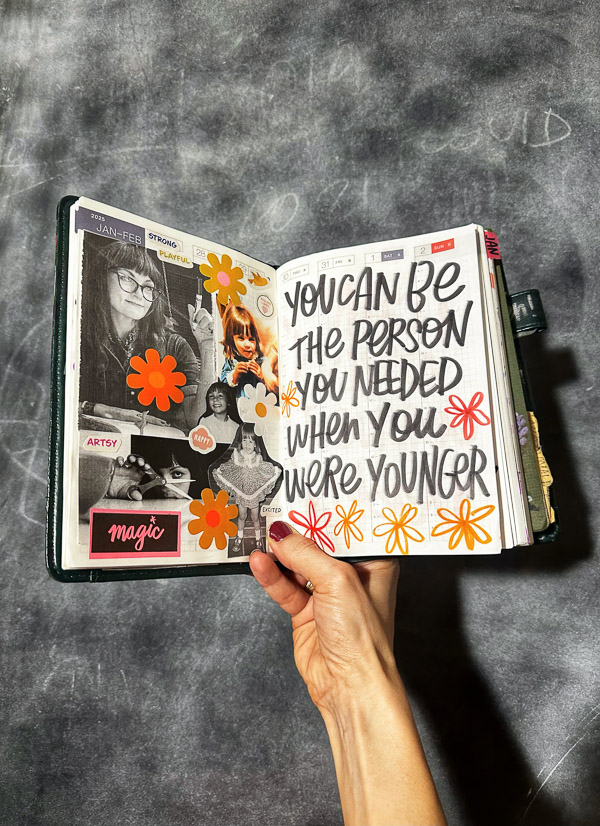 COVID
2025
JAN-FEB
STRONG
PLAYFUL
28
ARTSY
HAPPY
EXCITED
magic
31 FRI
1 SAT
2 SUN
JAN
YOU CAN BE
THE PERSON
YOU NEEDED
WHEN YOU
WERE YOUNGER